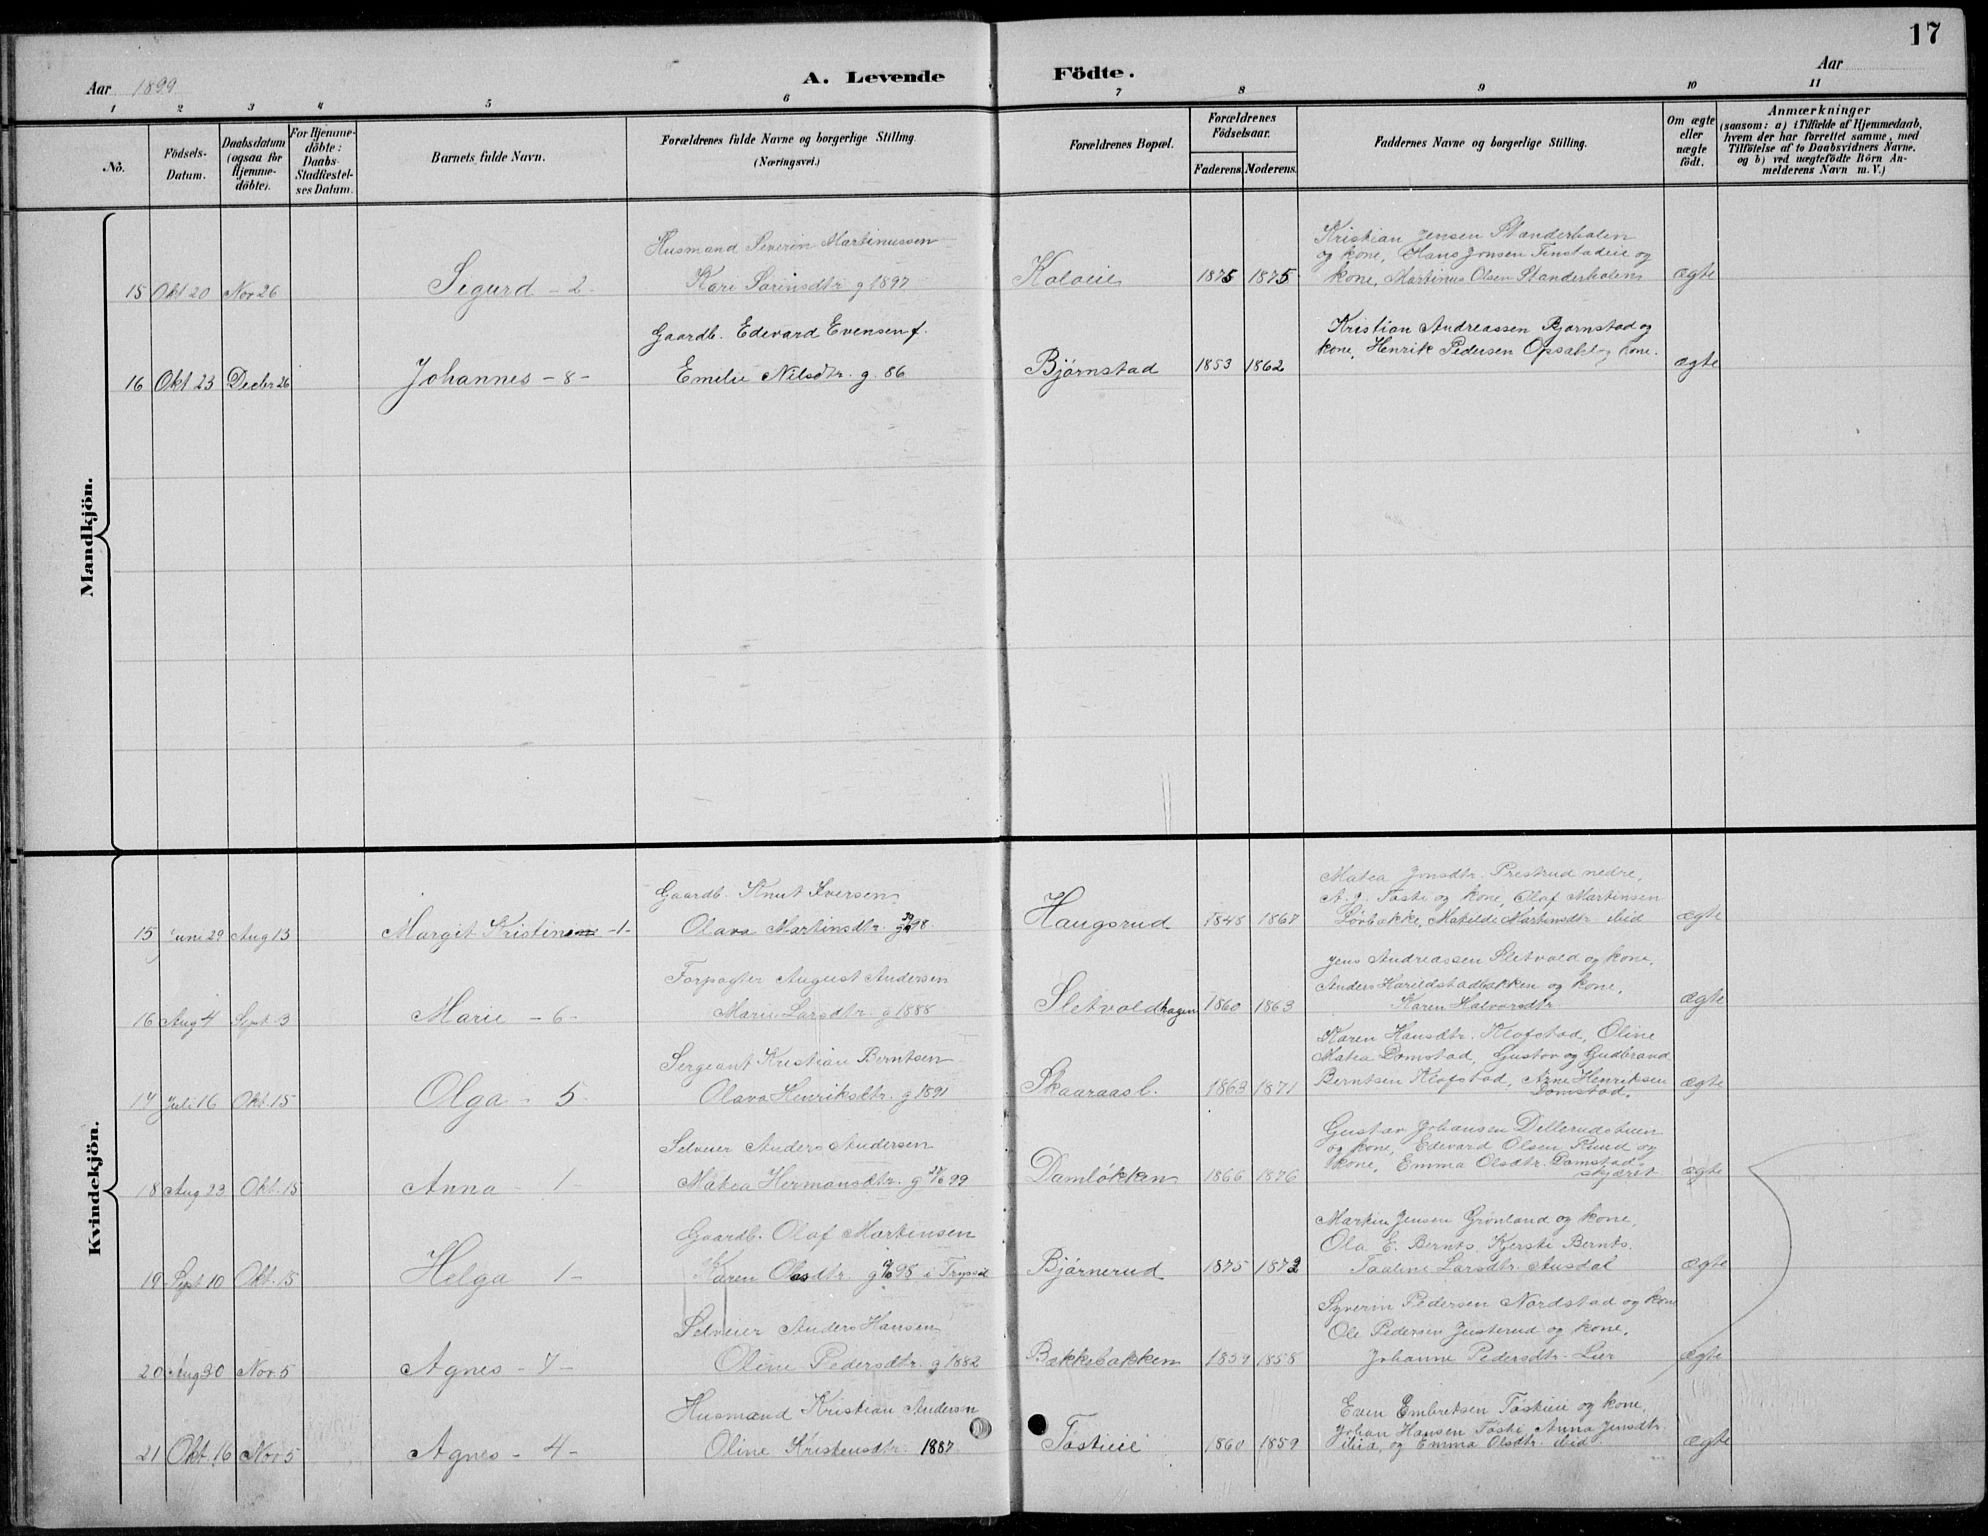 17
Aar 1899
A. Levende Födte.
Aar
1 2 3 4 5 6 7 8 9 10 11
No.
Födsels-Datum.
Daabsdatum (ogsaa for Hjemme-döbte).
For Hjemme-döbte: Daabs-Stadfæstel-ses Datum.
Barnets fulde Navn.
Forældrenes fulde Navne og borgerlige Stilling. (Næringsvei.)
Forældrenes Bopæl.
Forældrenes Födselsaar.
Faderens. Moderens.
Faddernes Navne og borgerlige Stilling.
Om ægte eller uægte födt.
Anmærkninger
(saasom: a) i Tilfælde af Hjemmedaab,
hvem der har forrettet samme, med
Tilföielse af to Daabsvidners Navne.
og b) ved uægtefödte Börn An-
melderens Navn m. V.)
Mandkjön.
Husmand Severin Martinussen
Kristian Jensen Standerholen
og kone, Hans Jonsen Finstadeie og
15 Okt 20 Nov 26 Sigurd - 2 - Kari Sorinsdtr g 1897 Koloeie 1875 1875 kone, Martinus Olsen Standerholen ægte
Gaardb. Edevard Evensen f.
Kristian Andreassen Bjørnstad og
kone, Henrik Pedersen Opsahl og kone.
16 Okt 23 Decbr 26 Johannes - 8 - Emelie Nilsdtr. g. 86 Bjørnstad 1853 1862 ægte
Kvindekjön.
Gaardb. Knut Iversen
Matea Jonsdtr. Prestrud nedre,
A. J. Toste og kone, Olaf Martinsen
15 Juni 29 Aug 13 Margit Kristine - 1 - Olava Martinsdtr. g 98 Haugsrud 1848 1867 Løvbakke, Matilde Martinsdtr ibid ægte
Forpagter August Andersen
Jens Andreassen Sletvold og kone,
Anders Harildstadbakken og kone,
16 Aug 4 Sept 3 Marie - 6 - Marie Larsdtr. g 1888 Sletvoldhagen 1860 1863 Karen Halvorsdtr ægte
Sergeant Kristian Berntsen
Karen Hansdtr. Klofstad, Oline
Matea Domstad, Gustav og Gudbrand
17 Juli 16 Okt. 15 Olga - 5 - Olava Henriksdtr. g 1891 Skaaraasl. 1863 1871 Berntsen Klofstad, Arne Henriksen ægte
Domstad.
Selveier Anders Andersen
Gustav Johansen Dellerudstuen
og kone, Edevard Olsen Rund og
18 Aug 23 Okt. 15 Anna 1 - Matea Hermansdtr. g 99 Damløkken 1866 1876 kone, Emma Olsdtr. Domstad- ægte
skjæret
Gaardb. Olaf Martinsen
Martin Jensen Grønland og kone,
Ola E. Bernts. Kjersti Bernts.
19 Sept 10 Okt. 15 Helga 1 - Karen Olsdtr. g 98 i Trysil Bjørnerud 1875 1872 Pauline Larsdtr. Ausdal ægte
Selveier Anders Hansen
Syverin Pedersen Nordstad og kone
Ole Pedersen Justerud og kone.
20 Aug 30 Nov. 5 Agnes - 7 - Oline Pedersdtr. g 1882 Bækkebakken 1859 1858 Johanne Pedersdtr. Lier ægte
Husmand Kristian Andersen
Even Embretsen Tosteie og kone,
Johan Hansen Toste, Anna Jensdtr.
21 Okt. 16 Nov 5 Agnes - 4 - Oline Kristensdtr. 1887. Tosteie 1860 1859 ibid, og Emma Olsdtr. ibid ægte